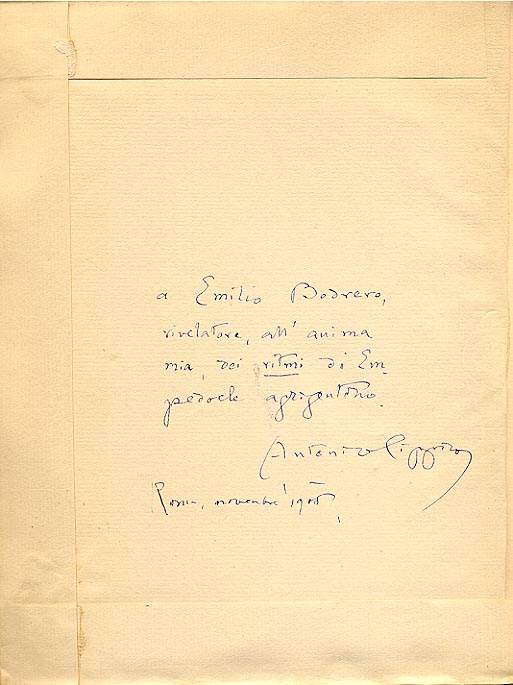 a Emilio Bodrero,
rivelatore, all'anima
mia, dei ritmi di Em-
pedocle agrigentino.
Antonio
Roma, novembre